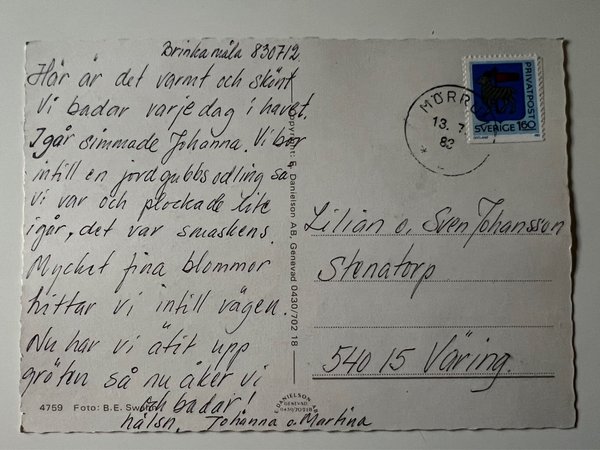 Brinkamåla 830712
Här är det varmt och skönt
Vi badar varje dag i havet.
Igår simmade Johanna. Vi bor
intill en jordgubbsodling så
vi var och plockade lite
igår, det var smaskens.
Mycket fina blommor
hittar vi intill vägen.
Nu har vi ätit upp
gröten så nu åker vi
och badar!
hälsn. Johanna o. Martina
4759 Foto: B.E. 
Copyright: E. Danielson AB, Genevad 0430/702 18
E. DANIELSON AB
GENEVAD
0430/70218
MÖRRUM
13. 7
83
PRIVATPOST
SVERIGE 160
GOTLAND
Lilian o. Sven Johansson
Stenatorp
540 15 Väring.